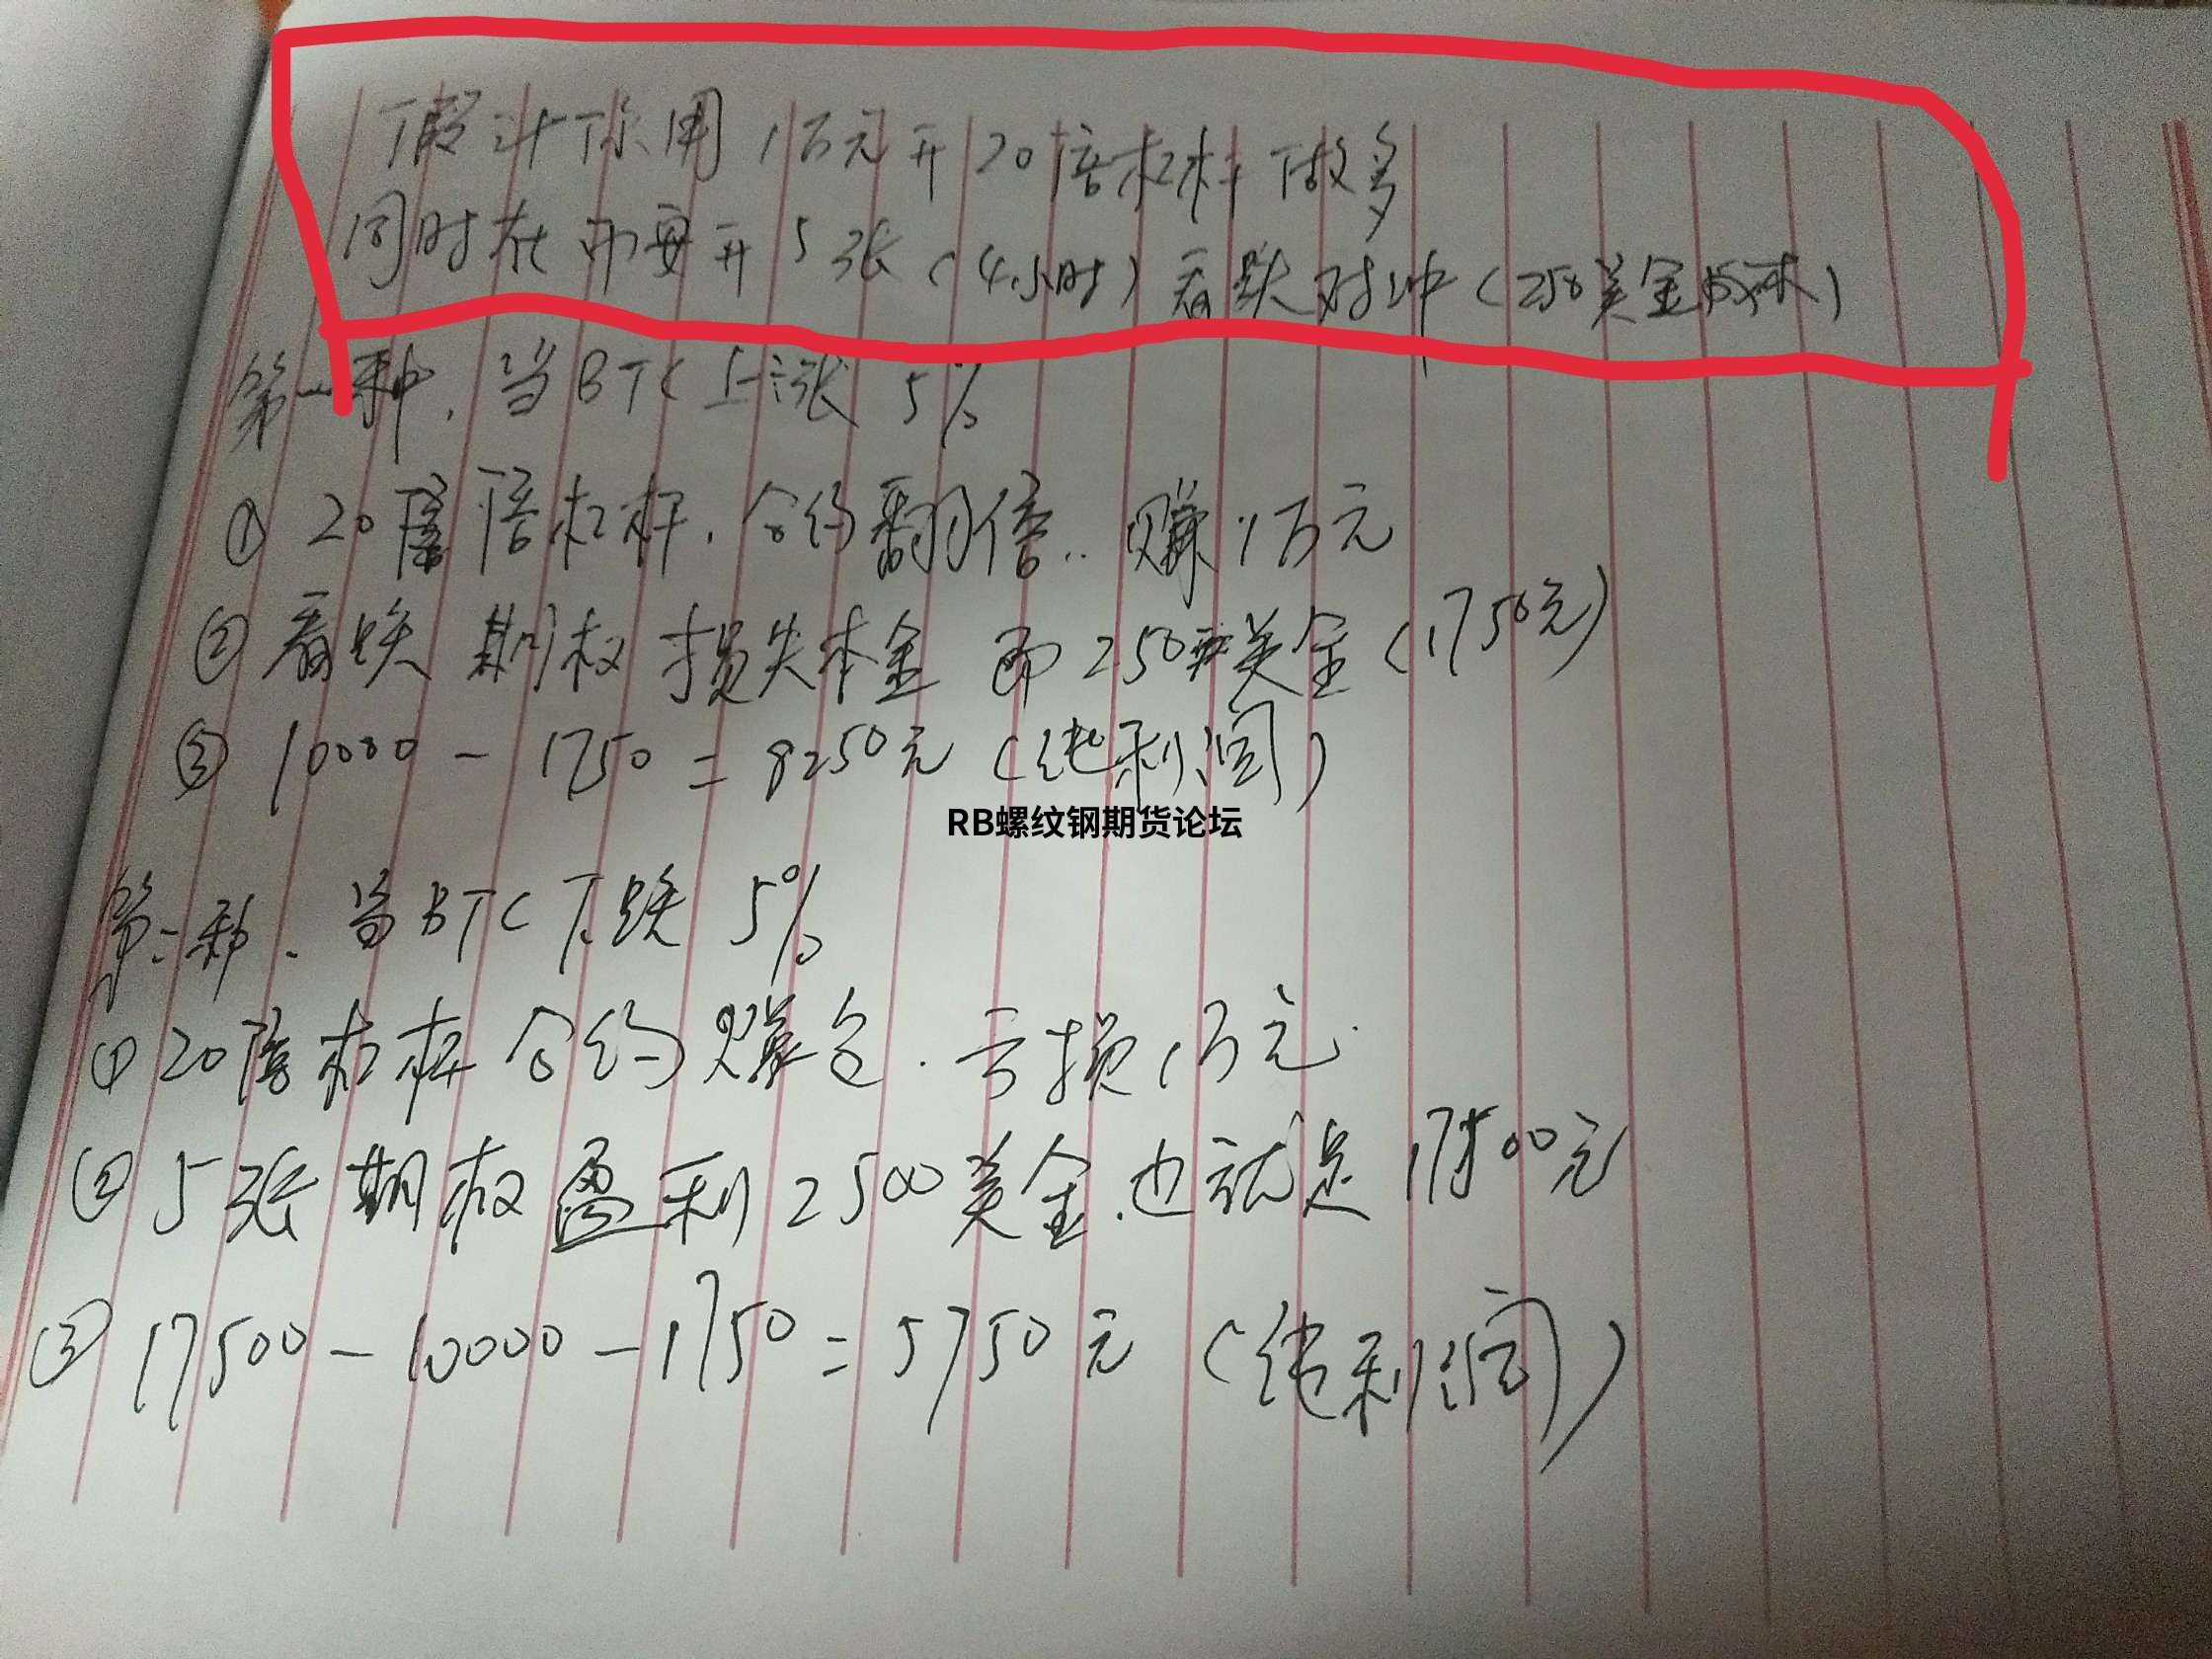 假设你用1万元开20倍杠杆做多
同时在币安开5张(4小时)看跌对冲(250美金成本)
第一种,当BTC上涨5%
① 20倍杠杆,合约翻倍..赚1万元
② 看跌期权损失本金 即250美金(1750元)
③ 10000-1750=8250元(纯利润)
RB螺纹钢期货论坛
第二种、当BTC下跌5%
① 20倍杠杆合约爆仓.亏损1万元.
② 5张期权盈利2500美金.也就是17500元
③ 17500-10000-1750=5750元(纯利润)